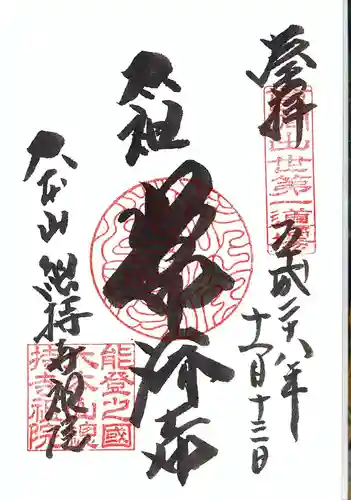 登拝
曹洞出世第一道場
平成二十八年
十一月十三日
太祖
常濟大師
大本山 總持寺祖院
能登之國
大本山總
持寺祖院